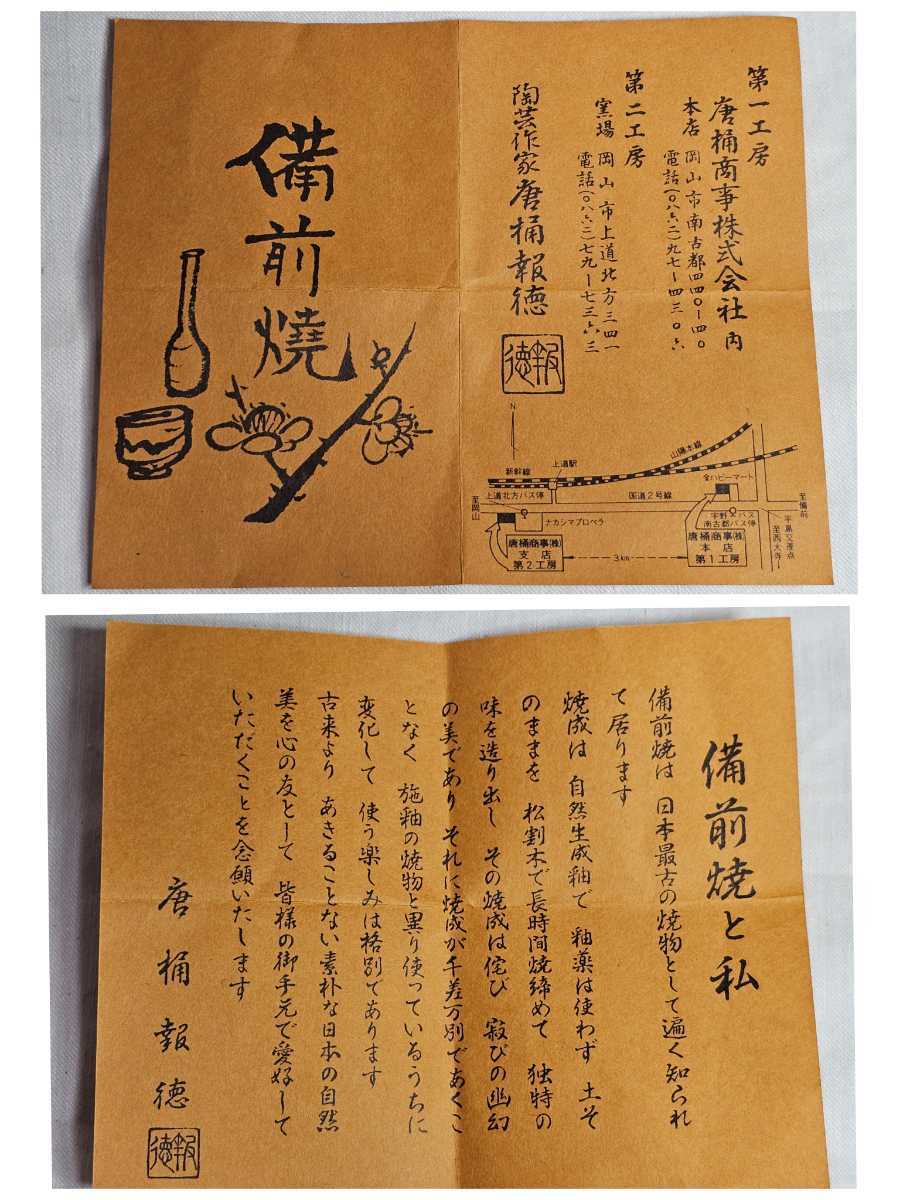 第一工房
唐桶商事株式会社内
本店 岡山市南古都四四〇ー四〇
電話(〇八六二)九七ー四三〇六
第二工房
窯場 岡山市上道北方三四一
電話(〇八六二)七九ー七三六三
陶芸作家 唐桶報徳
報徳
備前燒
N
山陽本線
上道駅
新幹線
全ハピーマート
上道北方バス停
国道2号線
至岡山
ナカシマプロペラ
宇野バス
南古都バス停
至備前
平島交差点
至西大寺
唐桶商事(株)
支店
第2工房
3km
唐桶商事(株)
本店
第1工房
備前焼と私
備前焼は 日本最古の焼物として遍く知られ
て居ります
焼成は 自然生成釉で 釉薬は使わず 土そ
のままを 松割木で長時間焼締めて 独特の
味を造り出し その焼成は侘び 寂びの幽幻
の美であり それに焼成が千差万別であくこ
となく 施釉の焼物と異り使っているうちに
変化して 使う楽しみは格別であります
古来より あきることない素朴な日本の自然
美を心の友として 皆様の御手元で愛好して
いただくことを念願いたします
唐桶報徳
報徳